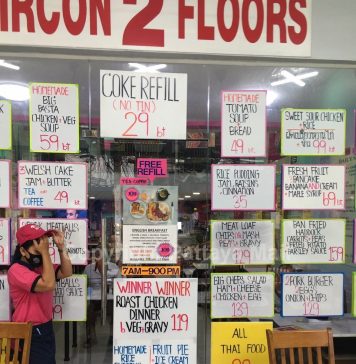 IRCON - 2 FLOORS
COKE REFILL
(NO TIN)
29 bt
HOMEMADE
BIG
PASTA
CHICKEN & VEG
SOUP
59
HOMEMADE
TOMATO
SOUP
BREAD
49
SWEET SOUR CHICKEN
+ RICE
99
3 WELSH CAKE
JAM & BUTTER
TEA
COFFEE
49
FREE
REFILL
TEA-COFFEE
RICE PUDDING
JAM, RAISINS
CINNAMON
35
FRESH FRUIT
PANCAKE
BANANA AND CREAM
MAPLE SYRUP
69
MEATBALLS
ENGLISH BREAKFAST
7AM-9.00PM
MEAT LOAF
CHIPS OR MASH
PEAS GRAVY
179
PAN FRIED
HADDOCK
PARSLEY SAUCE
159
WINNER WINNER
ROAST CHICKEN
DINNER
VEG & GRAVY 119
BIG CHEFS SALAD
HAM & CHEESE
CHICKEN & EGG
139
2 PORK BURGER
ONION & CHIPS
129
HOMEMADE
RICE
FRUIT PIE
+ ICE CREAM
ALL THAI
FOOD